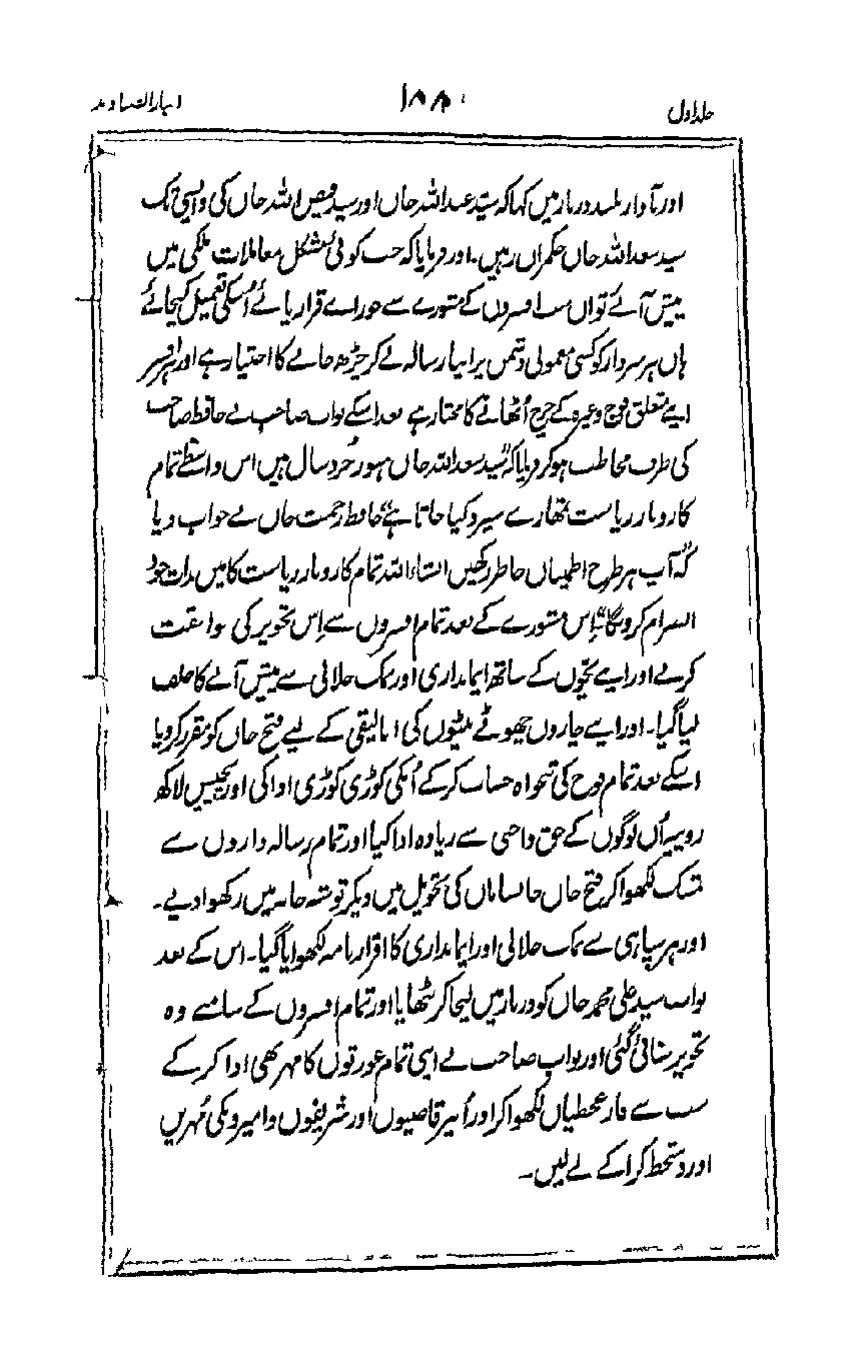 جلد اول
۱۸۸
اخبار الصنادید
اور بآواز بلند دربار میں کہا کہ سید عبداللہ خاں اور سید فیض اللہ خاں کی واپسی تک
سید سعد اللہ خاں حکمراں رہیں۔ اور فرمایا کہ جب کوئی مشکل معاملات ملکی میں
پیش آئے تو ان سب افسروں کے مشورے سے جو رائے قرار پائے اُسکی تعمیل کیجائے
ہاں ہر سردار کو کسی معمولی دشمن پر اپنا رسالہ لے کر چڑھ جانے کا اختیار ہے اور ہر افسر
اپنے متعلق فوج وغیرہ کے خرچ اُٹھانے کا مختار ہے بعد اسکے نواب صاحب نے حافظ صاحب
کی طرف مخاطب ہو کر فرمایا کہ "سید سعد اللہ خاں ہنوز خُرد سال ہیں اس واسطے تمام
کاروبار ریاست تمھارے سپرد کیا جاتا ہے" حافظ رحمت خاں نے جواب دیا
کہ "آپ ہر طرح اطمینان خاطر رکھیں انشاء اللہ تمام کاروبار ریاست کا میں بذات خود
انصرام کروں گا" اِس مشورے کے بعد تمام افسروں سے اِس تجویز کی موافقت
کرنے اور اپنے بچوں کے ساتھ ایمانداری اور نمک حلالی سے پیش آنے کا حلف
لیا گیا۔ اور اپنے چاروں چھوٹے بیٹوں کی اتالیقی کے لیے فتح خاں کو مقرر کر دیا
اسکے بعد تمام فوج کی تنخواہ حساب کر کے اُنکی کوڑی کوڑی ادا کی اور پچیس لاکھ
روپیہ اُن لوگوں کے حق واجبی سے زیادہ ادا کیا اور تمام رسالہ داروں سے
تمسک لکھوا کر فتح خاں خانساماں کی تحویل میں دیکر توشہ خانہ میں رکھوا دیے۔
اور ہر سپاہی سے نمک حلالی اور ایمانداری کا اقرار نامہ لکھوایا گیا۔ اس کے بعد
نواب سید علی محمد خاں کو دربار میں لیجا کر بٹھایا اور تمام افسروں کے سامنے وہ
تحریر سنائی گئی اور نواب صاحب نے اپنی تمام عورتوں کا مہر بھی ادا کر کے
سب سے فارغخطیاں لکھوا کر اور اُنپر قاضیوں اور شریفوں و امیرونکی مُہریں
اور دستخط کرا کے لے لیں۔